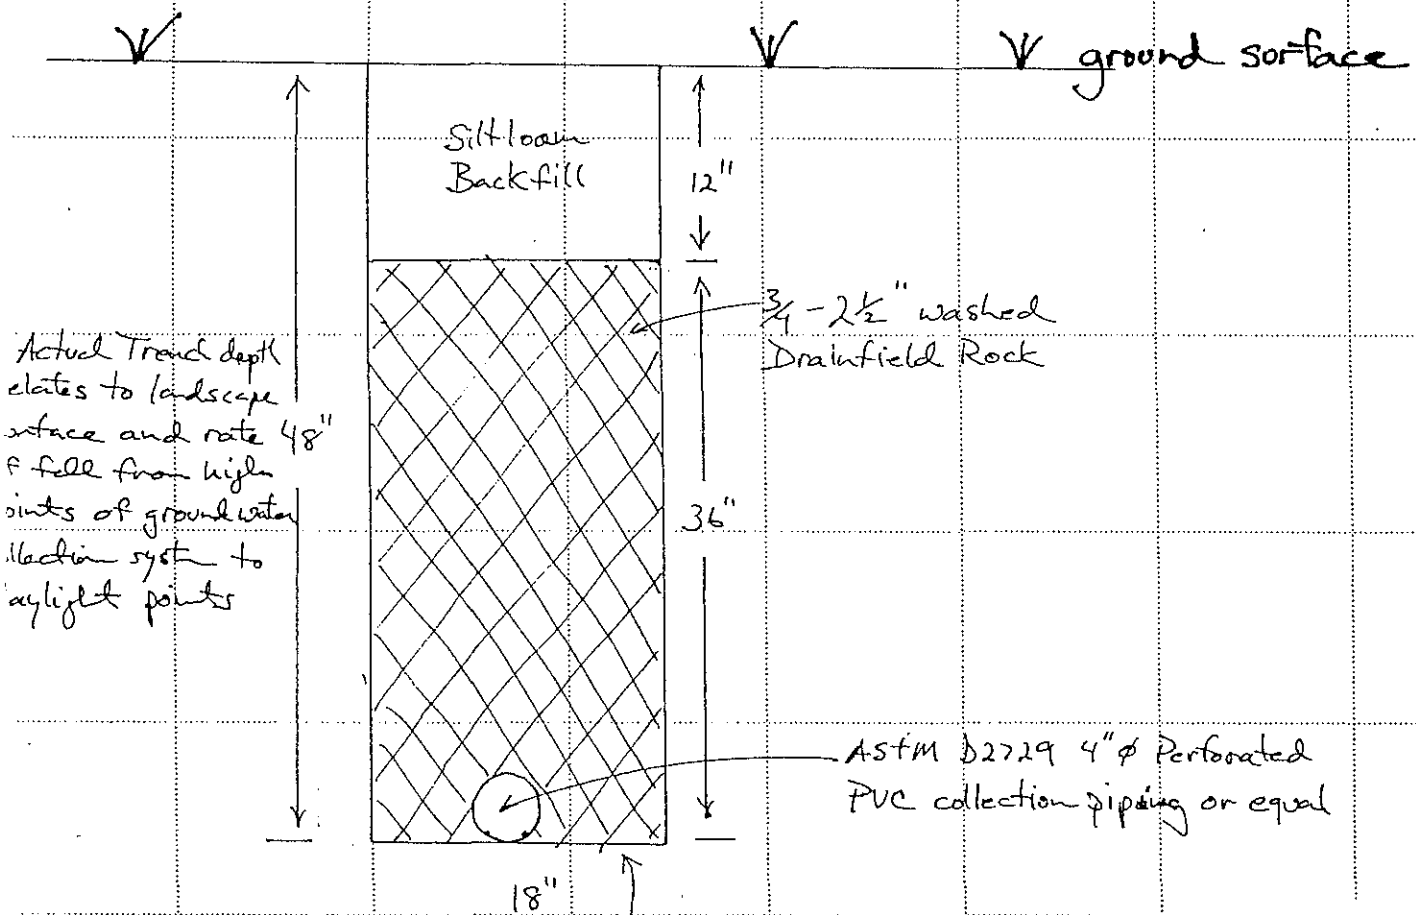 ground sorface
Silt loam
Backfill
12"
3/4 - 2 1/2" washed
Drainfield Rock
Actual Trench depth
elates to landscape
rface and rate
f fall from high
oints of groundwater
llection systm to
aylight points
48"
36"
ASTM D2729 4"ø Perforated
PVC collection piping or equal
18"